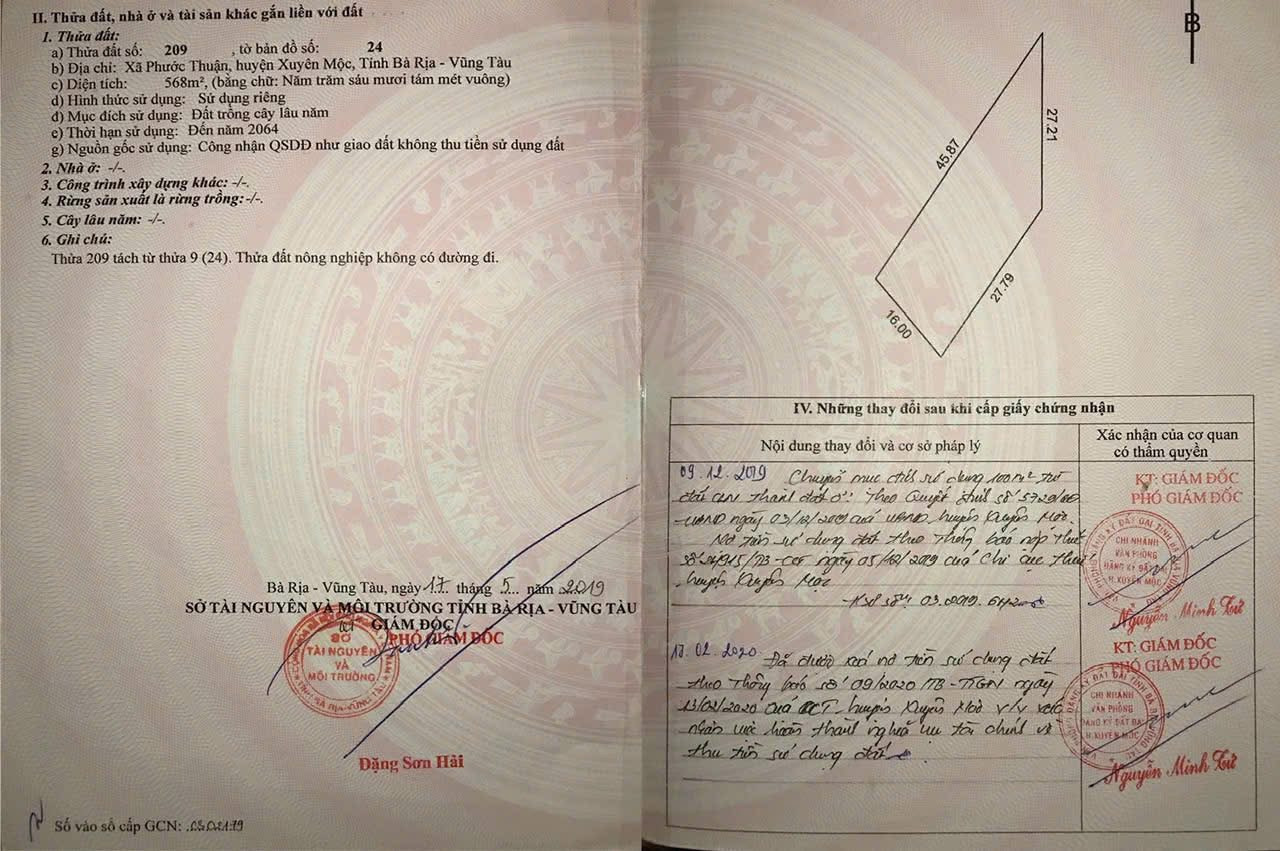 II. Thửa đất, nhà ở và tài sản khác gắn liền với đất
1. Thửa đất:
a) Thửa đất số: 209 , tờ bản đồ số: 24
b) Địa chỉ: Xã Phước Thuận, huyện Xuyên Mộc, Tỉnh Bà Rịa - Vũng Tàu
c) Diện tích: 568m², (bằng chữ: Năm trăm sáu mươi tám mét vuông)
d) Hình thức sử dụng: Sử dụng riêng
đ) Mục đích sử dụng: Đất trồng cây lâu năm
e) Thời hạn sử dụng: Đến năm 2064
g) Nguồn gốc sử dụng: Công nhận QSDĐ như giao đất không thu tiền sử dụng đất
2. Nhà ở: -/-.
3. Công trình xây dựng khác: -/-.
4. Rừng sản xuất là rừng trồng:-/-.
5. Cây lâu năm: -/-.
6. Ghi chú:
Thửa 209 tách từ thửa 9 (24). Thửa đất nông nghiệp không có đường đi.
Bà Rịa - Vũng Tàu, ngày 17 tháng 5 năm 2019
SỞ TÀI NGUYÊN VÀ MÔI TRƯỜNG TỈNH BÀ RỊA - VŨNG TÀU
GIÁM ĐỐC
PHÓ GIÁM ĐỐC
SỞ
TÀI NGUYÊN
VÀ
MÔI TRƯỜNG
TỈNH BÀ RỊA-VŨNG TÀU
Đặng Sơn Hải
Số vào sổ cấp GCN:
B
45.87
27.21
27.79
16.00
IV. Những thay đổi sau khi cấp giấy chứng nhận
Nội dung thay đổi và cơ sở pháp lý
Xác nhận của cơ quan
có thẩm quyền
09.12.2019 Chuyển mục đích sử dụng 100m² từ
đất CLN thành đất ở. Theo Quyết định số 5720/QĐ
-UBND ngày 03/12/2019 của UBND huyện Xuyên Mộc.
Nợ tiền sử dụng đất theo Thông báo nộp thuế
ngày 05/12/2019 của Chi cục thuế
huyện Xuyên Mộc
KT: GIÁM ĐỐC
PHÓ GIÁM ĐỐC
CHI NHÁNH
VĂN PHÒNG
ĐĂNG KÝ ĐẤT ĐAI
H.XUYÊN MỘC
Nguyễn Minh Tứ
02.2020 Đã được xoá nợ tiền sử dụng đất
theo Thông báo số 09/2020/TB- ngày
13/02/2020 của huyện Xuyên Mộc V/v xác
nhận việc hoàn thành nghĩa vụ tài chính về
thu tiền sử dụng đất
KT: GIÁM ĐỐC
PHÓ GIÁM ĐỐC
CHI NHÁNH
VĂN PHÒNG
ĐĂNG KÝ ĐẤT ĐAI
H.XUYÊN MỘC
Nguyễn Minh Tứ